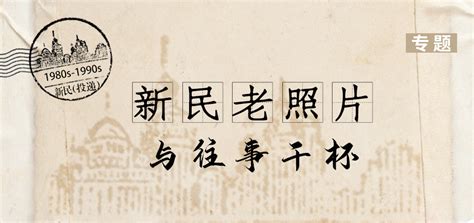 专题
1980s-1990s
新民(投递)
新民老照片
与往事干杯